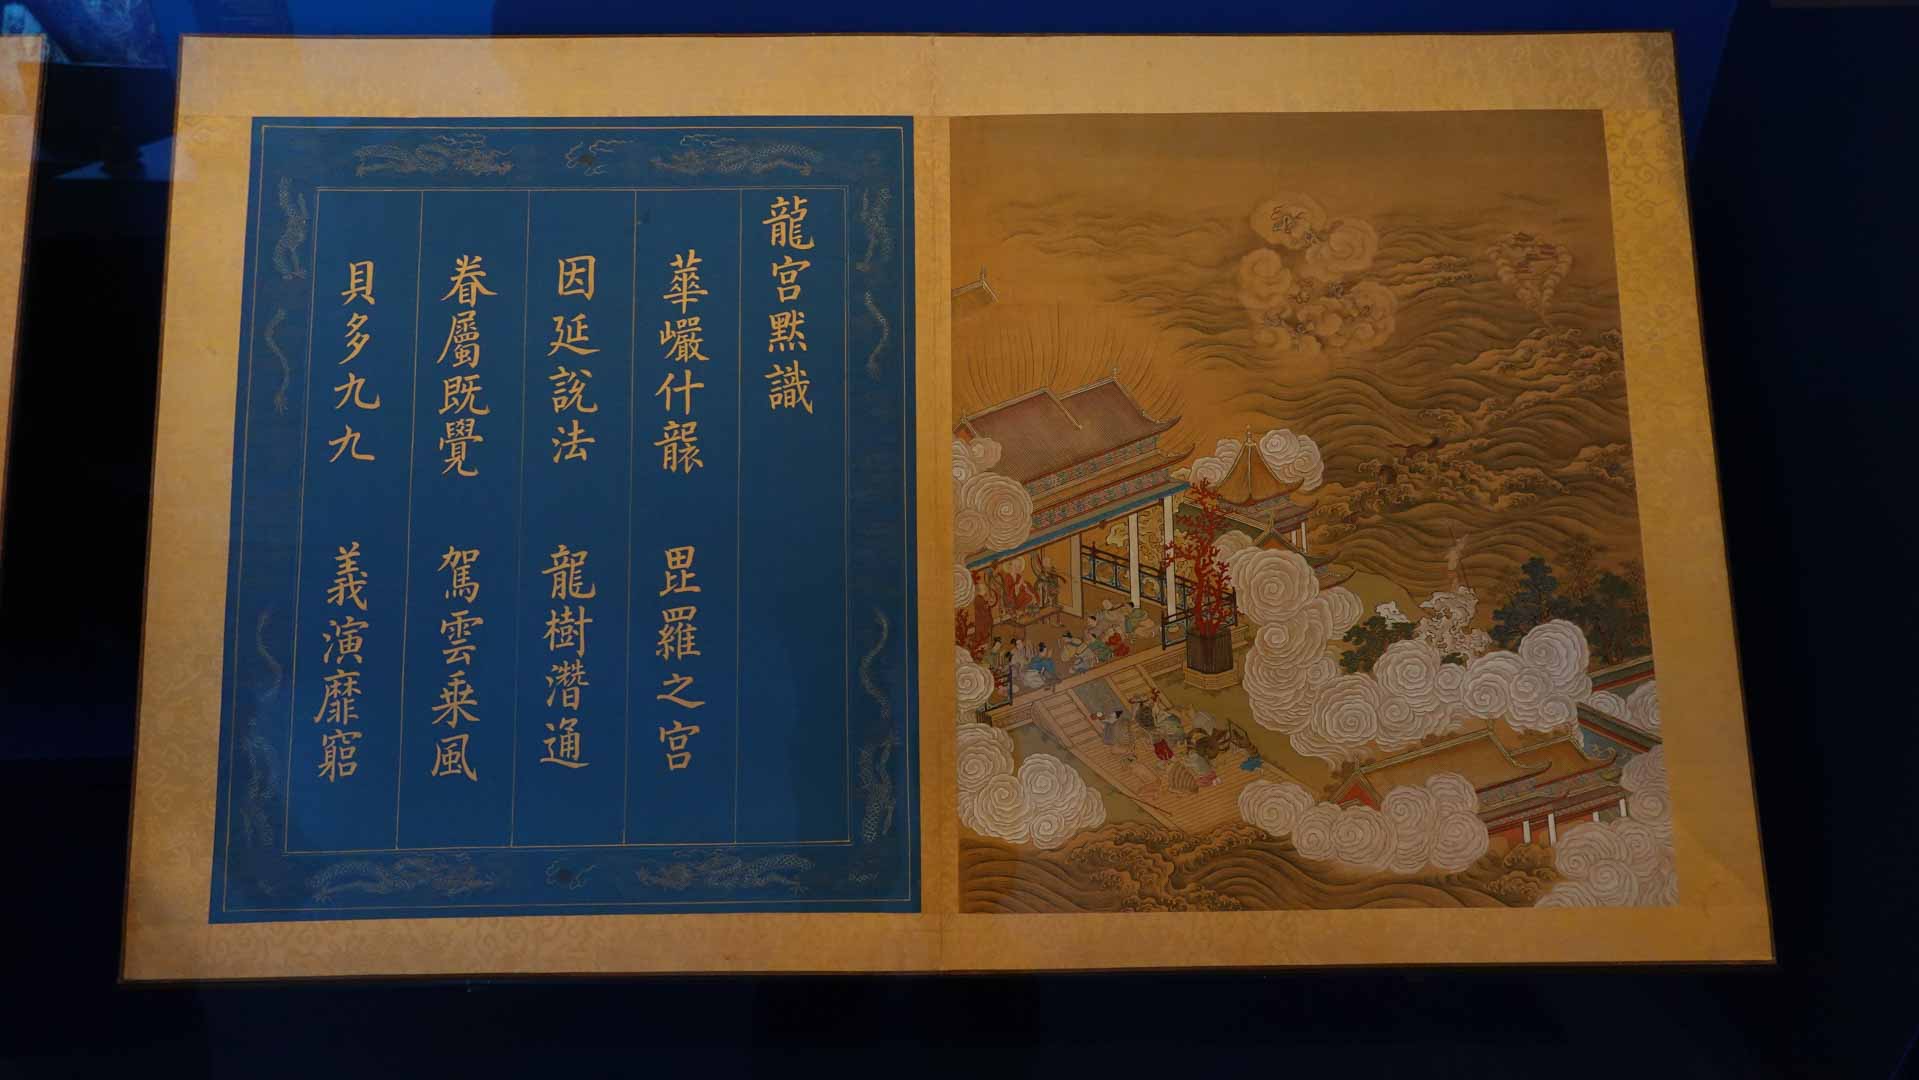 龍宮默識
華嚴什襲 毘羅之宮
因延說法 龍樹潛通
眷屬既覺 駕雲乗風
貝多九九 義演靡窮